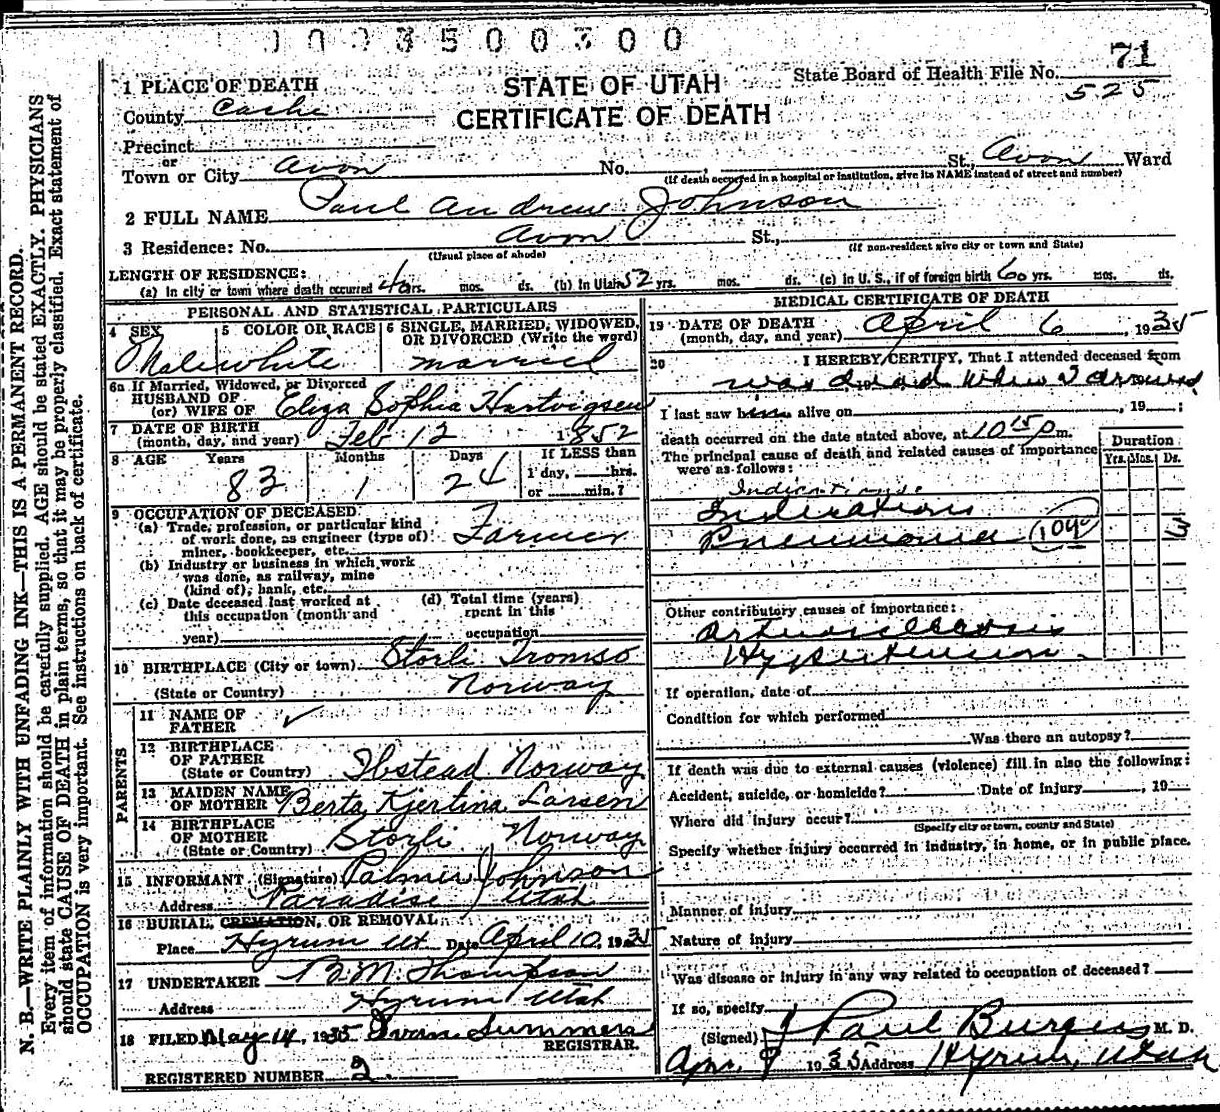 0 0 3 5 0 0 3 0 0
71
State Board of Health File No.
525
1 PLACE OF DEATH
STATE OF UTAH
CERTIFICATE OF DEATH
County Cache
Precinct
or
Town or City Avon No. St., Avon Ward
(If death occurred in a hospital or institution, give its NAME instead of street and number)
2 FULL NAME Paul Andrew Johnson
3 Residence: No. Avon St.,
(Usual place of abode) (If non-resident give city or town and State)
LENGTH OF RESIDENCE:
(a) In city or town where death occurred 40 yrs. mos. ds. (b) In Utah 52 yrs. mos. ds. (c) In U. S., if of foreign birth 60 yrs. mos. ds.
PERSONAL AND STATISTICAL PARTICULARS
4 SEX Male
5 COLOR OR RACE white
6 SINGLE, MARRIED, WIDOWED, OR DIVORCED (Write the word)
married
6a If Married, Widowed, or Divorced
HUSBAND OF
(or) WIFE OF Eliza Sophia Hartvigsen
7 DATE OF BIRTH
(month, day, and year) Feb 12 1852
8 AGE Years Months Days If LESS than
1 day, hrs.
83 1 24 or min.?
9 OCCUPATION OF DECEASED
(a) Trade, profession, or particular kind
of work done, as engineer (type of)
miner, bookkeeper, etc. Farmer
(b) Industry or business in which work
was done, as railway, mine
(kind of), bank, etc.
(c) Date deceased last worked at
this occupation (month and
year)
(d) Total time (years)
spent in this
occupation
10 BIRTHPLACE (City or town) Storli Tromso
(State or Country) Norway
PARENTS
11 NAME OF
FATHER ✓
12 BIRTHPLACE
OF FATHER
(State or Country) Ibstead Norway
13 MAIDEN NAME
OF MOTHER Berta Kjertina Larsen
14 BIRTHPLACE
OF MOTHER
(State or Country) Storli Norway
15 INFORMANT (Signature) Palmer Johnson
Address Paradise Utah
16 BURIAL, CREMATION, OR REMOVAL
Place Hyrum Ut. Date April 10, 1935
17 UNDERTAKER B. M. Thompson
Address Hyrum Utah
18 FILED May 14, 1935 Summers
REGISTRAR.
REGISTERED NUMBER 2
MEDICAL CERTIFICATE OF DEATH
19 DATE OF DEATH
(month, day, and year) April 6 1935
20 I HEREBY CERTIFY, That I attended deceased from
was dead when I arrived
I last saw him alive on , 19 ;
death occurred on the date stated above, at 10 15 p m.
The principal cause of death and related causes of importance
were as follows:
Duration
Yrs. Mos. Ds.
Pneumonia 3
Other contributory causes of importance:
Arteriosclerosis
Hypertension
If operation, date of
Condition for which performed
Was there an autopsy?
If death was due to external causes (violence) fill in also the following:
Accident, suicide, or homicide? Date of injury , 19
Where did injury occur?
(Specify city or town, county and State)
Specify whether injury occurred in industry, in home, or in public place.
Manner of injury
Nature of injury
Was disease or injury in any way related to occupation of deceased?
If so, specify
(Signed) J Paul Burgess M. D.
Apr. 9 1935 Address Hyrum, Utah
N. B.—WRITE PLAINLY WITH UNFADING INK—THIS IS A PERMANENT RECORD.
Every item of information should be carefully supplied. AGE should be stated EXACTLY. PHYSICIANS
should state CAUSE OF DEATH in plain terms, so that it may be properly classified. Exact statement of
OCCUPATION is very important. See instructions on back of certificate.